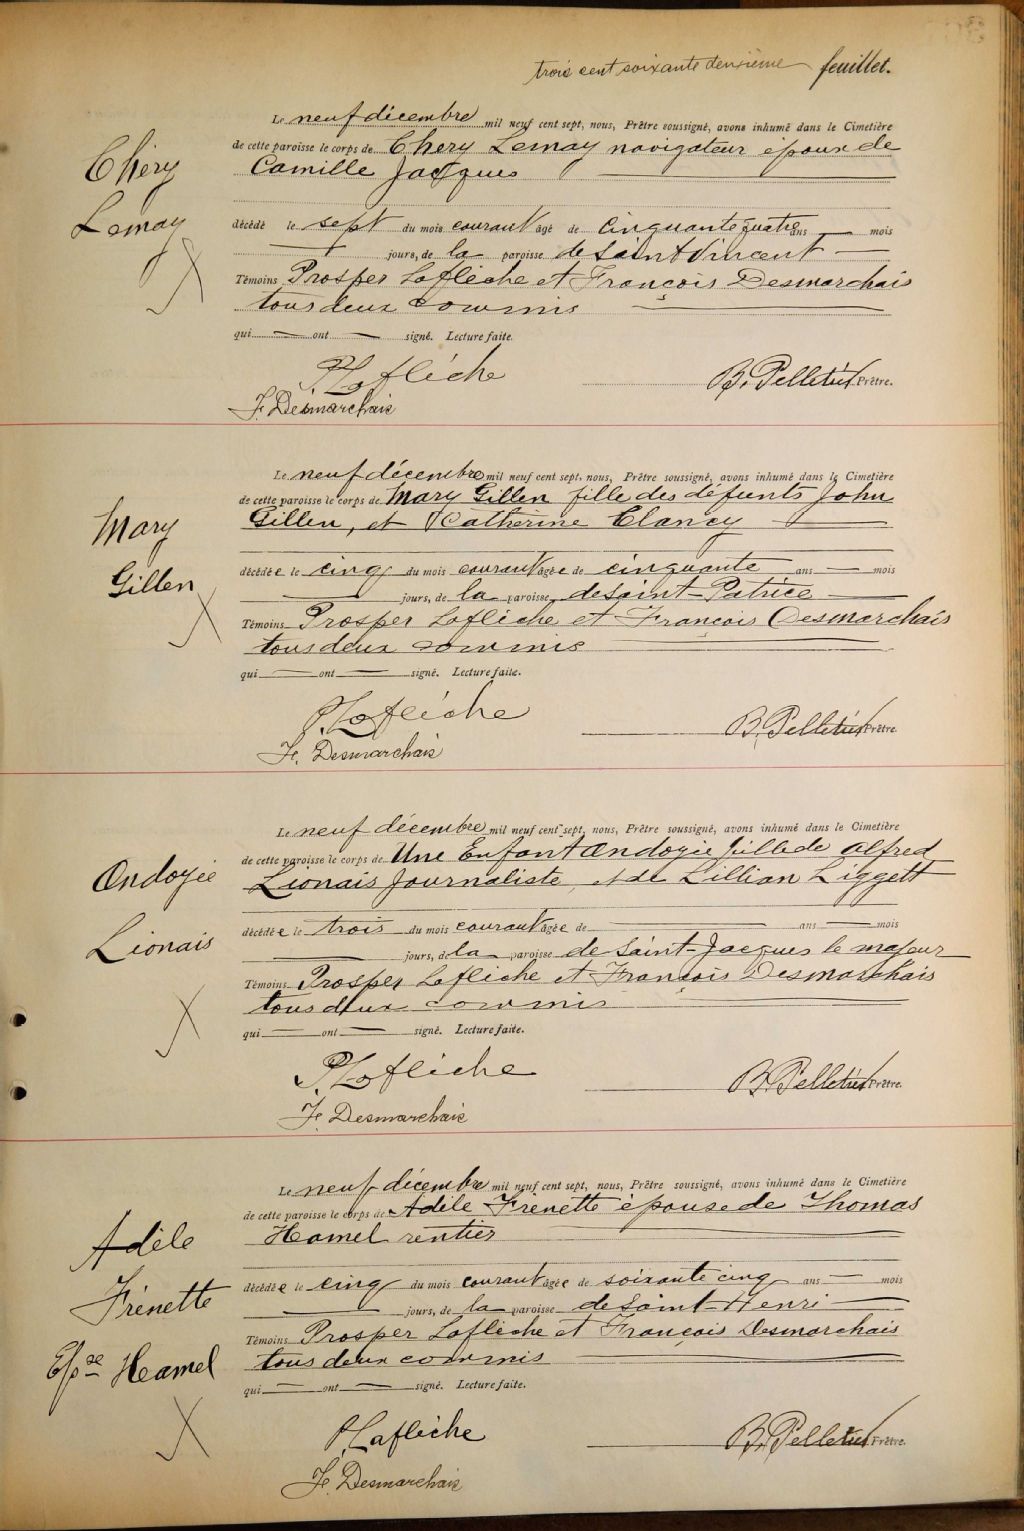 trois cent soixante deusième feuillet.
Le neuf décembre mil neuf cent sept, nous, Prêtre soussigné, avons inhumé dans le Cimetière
de cette paroisse le corps de Chery Lemay navigateur époux de
Camille Jacques
Chéry
Lemay
décédé le sept du mois courant âgé de cinquante quatre ans mois
jours, de la paroisse de Saint Vincent
Témoins Prosper Laflèche et François Desmarchais
tous deux commis
qui ont signé. Lecture faite.
P. Laflèche
B. Pelletier Prêtre.
F. Desmarchais
Le neuf décembre mil neuf cent sept, nous, Prêtre soussigné, avons inhumé dans le Cimetière
de cette paroisse le corps de Mary Gillen fille des défunts John
Gillen, et Catherine Clancy
Mary
Gillen
décédée le cinq du mois courant âgée de cinquante ans mois
jours, de la paroisse de Saint-Patrice
Témoins Prosper Laflèche et François Desmarchais
tous deux commis
qui ont signé. Lecture faite.
P. Laflèche
B. Pelletier Prêtre.
F. Desmarchais
Le neuf décembre mil neuf cent sept, nous, Prêtre soussigné, avons inhumé dans le Cimetière
de cette paroisse le corps de Une Enfant Ondoyée fille de Alfred
Lionais Journaliste, et de Lillian Liggett
Ondoyée
Lionais
décédée le trois du mois courant âgée de ans mois
jours, de la paroisse de Saint-Jacques le majeur
Témoins Prosper Laflèche et François Desmarchais
tous deux commis
qui ont signé. Lecture faite.
P. Laflèche
B. Pelletier Prêtre.
F. Desmarchais
Le neuf décembre mil neuf cent sept, nous, Prêtre soussigné, avons inhumé dans le Cimetière
de cette paroisse le corps de Adèle Frénette épouse de Thomas
Hamel rentier
Adèle
Frénette
Epse Hamel
décédée le cinq du mois courant âgée de soixante cinq ans mois
jours, de la paroisse de Saint-Henri
Témoins Prosper Laflèche et François Desmarchais
tous deux commis
qui ont signé. Lecture faite.
P. Laflèche
B. Pelletier Prêtre.
F. Desmarchais